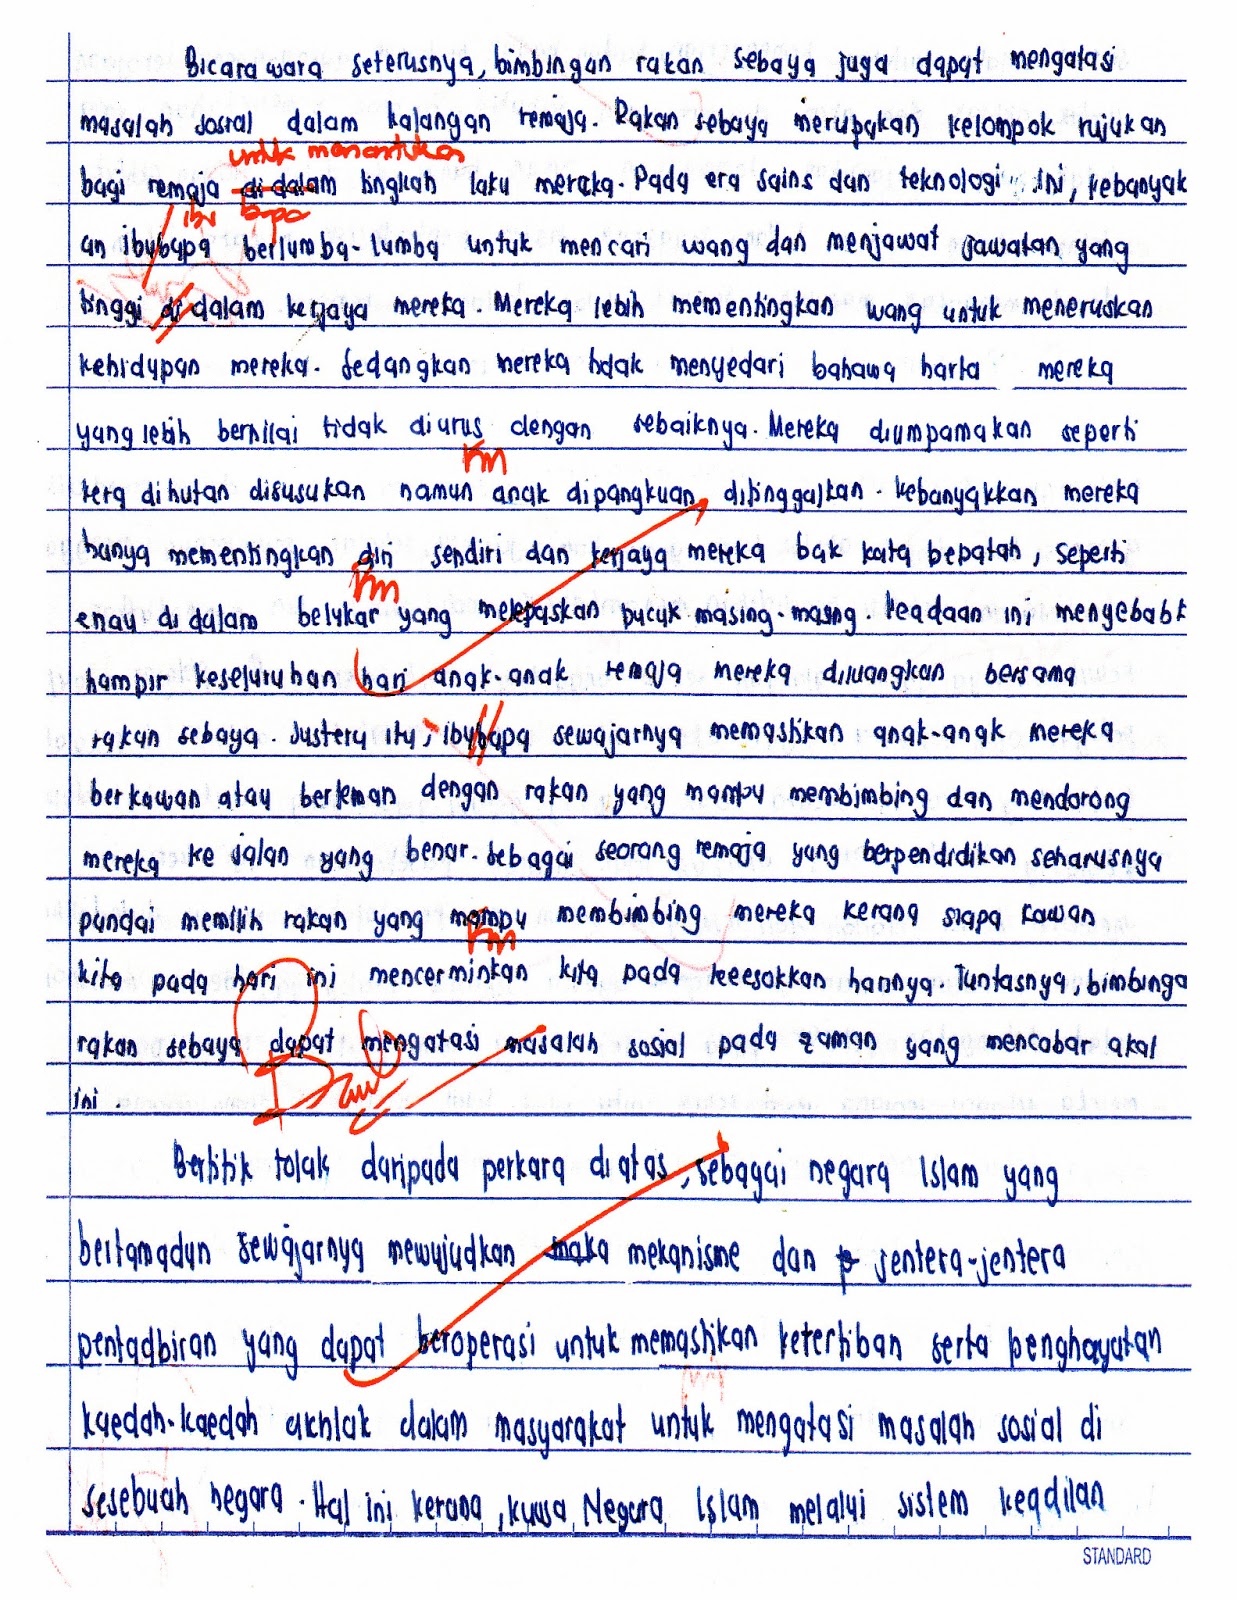 Bicara wara seterusnya, bimbingan rakan sebaya juga dapat mengatasi
masalah sosial dalam kalangan remaja. Rakan sebaya merupakan kelompok rujukan
untuk menentukan
bagi remaja di dalam tingkah laku mereka. Pada era sains dan teknologi ini, kebanyak
ibu bapa
an ibubapa berlumba-lumba untuk mencari wang dan menjawat jawatan yang
tinggi di dalam kerjaya mereka. Mereka lebih mementingkan wang untuk meneruskan
kehidupan mereka. Sedangkan mereka tidak menyedari bahawa harta mereka
yang lebih bernilai tidak diurus dengan sebaiknya. Mereka diumpamakan seperti
KM
kera dihutan disusukan namun anak dipangkuan ditinggalkan. Kebanyakkan mereka
hanya mementingkan diri sendiri dan kerjaya mereka bak kata bepatah, seperti
KM
enau di dalam belukar yang melepaskan pucuk masing-masing. Keadaan ini menyebabk
hampir keseluruhan hari anak-anak remaja mereka diluangkan bersama
rakan sebaya. Justeru itu, ibubapa sewajarnya memastikan anak-anak mereka
berkawan atau berteman dengan rakan yang mampu membimbing dan mendorong
mereka ke jalan yang benar. Sebagai seorang remaja yang berpendidikan seharusnya
pandai memilih rakan yang mampu membimbing mereka kerana siapa kawan
KM
kita pada hari ini mencerminkan kita pada keesokkan harinnya. Tuntasnya, bimbinga
rakan sebaya dapat mengatasi masalah sosial pada zaman yang mencabar akal
ini.
Bertitik tolak daripada perkara di atas, sebagai negara Islam yang
bertamadun sewajarnya mewujudkan maka mekanisme dan p jentera-jentera
pentadbiran yang dapat beroperasi untuk memastikan ketertiban serta penghayatan
kaedah-kaedah akhlak dalam masyarakat untuk mengatasi masalah sosial di
sesebuah negara. Hal ini kerana, kuasa Negara Islam melalui sistem keadilan
STANDARD